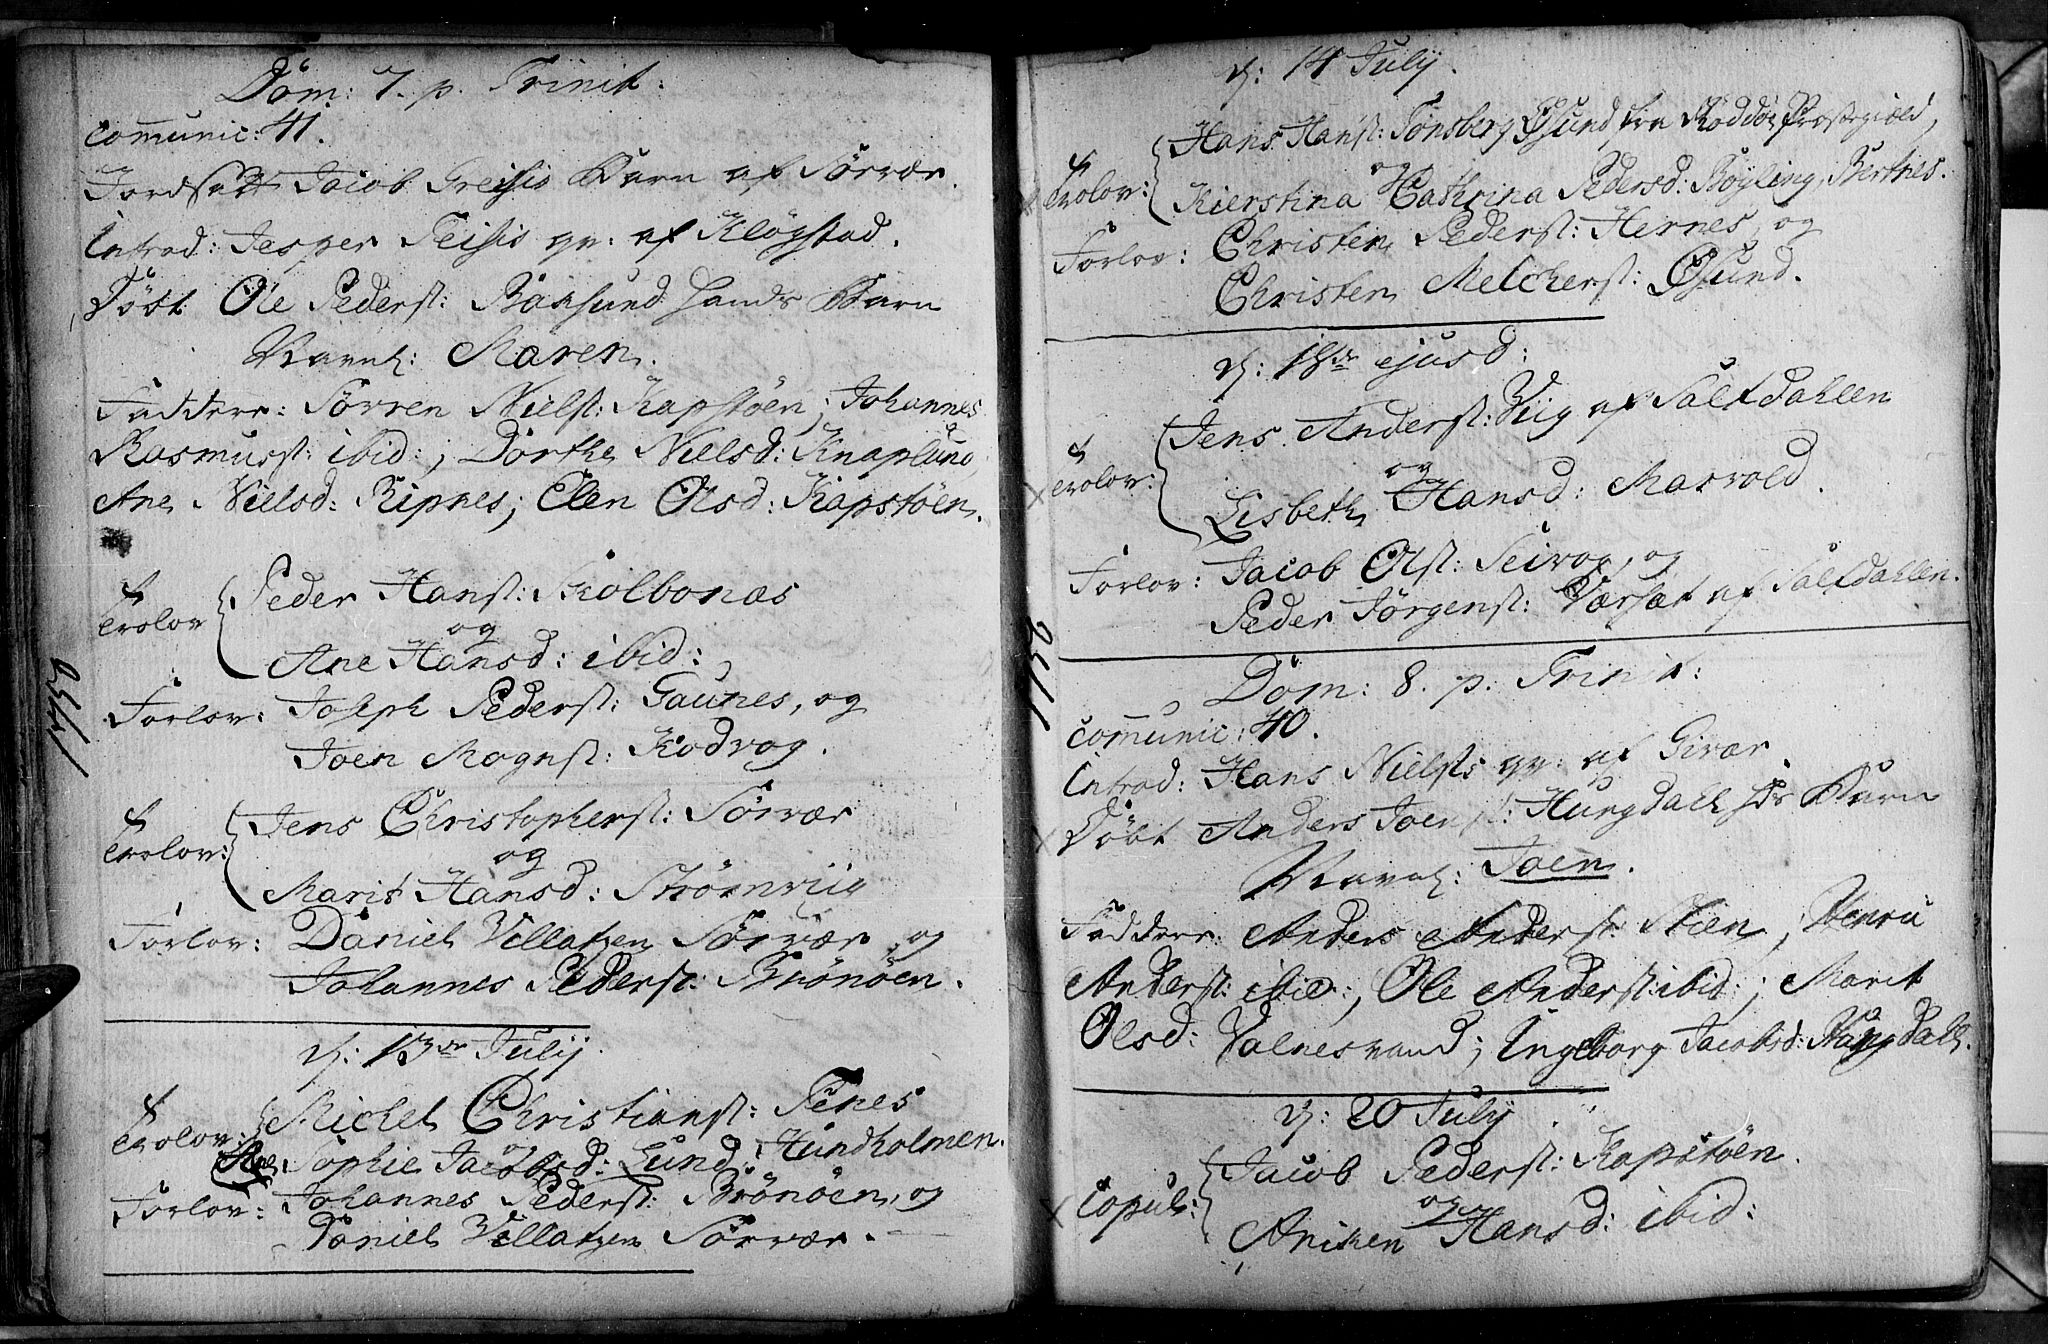 Dom: 7. p. Trinit:
Communic: 41.
Jordsatt Jacob Greisis Barn af Sørvær.
Introd: Jesper Teisis qv: af Kløgstad.
Døbt Ole Peders: Baxsund hands Barn
Navnl: Maren.
Faddere: Sørren Niels: Kapstøen; Johannes
Rasmuss: ibid:, Dorthe Nielsd: Knaplund
Ane Nielsd: Ripnes; Elen Olsd: Kapstøen.
Trolov Peder Hans: Kolbonæs
og
Ane Hansd: ibid:,
Forlov: Joseph Peders: Gaunes, og
Joen Mogns: Kodvog.
Trolov: Jens Christophers: Sørvær
og
Marit Hansd: Strøenviig
Forlov: Daniel Villatzen Sørvær og
Johannes Peders: Brønøen.
d: 13de Julij
Trolov: Michel Christians: Tenes
og
Ane Sophie Jacobsd: Lund, Hundholmen.
Forlov: Johannes Peders: Brønøen, og
Daniel Villatzen Sørvær.
1753
d: 14 Julij.
Trolov: Hans Hans: Tønsberg Øsund, fra Røddøe Præstegield,
og
Kierstina Cathrina Pedersd: Bøyling, Bertnes.
Forlov: Christen Peders: Hernes, og
Christen Melchers: Øsund.
d: 18de ejusd:
Trolov: Jens Anders: Viig af Saltdahlen
og
Lisbeth Hansd: Marvold.
Forlov: Jacob Ols: Seivog, og
Peder Jørgens: Værsæt af Saltdahlen.
Dom: 8. p. Trinit:
Communic: 40.
Introd: Hans Nielsis qv: af Givær.
Døbt Anders Joens: Hungdahl hs Barn
Navnl: Joen.
Faddere: Anders Anders: Stien, Henric
Anders: ibid:, Ole Anders: ibid:; Marit
Olsd: Valnesvand; Ingeborg Jacobsd: Hungdahl.
d: 20 Julij
Copul: Jacob Peders: Kapstøen.
og
Aniken Hansd: ibid: